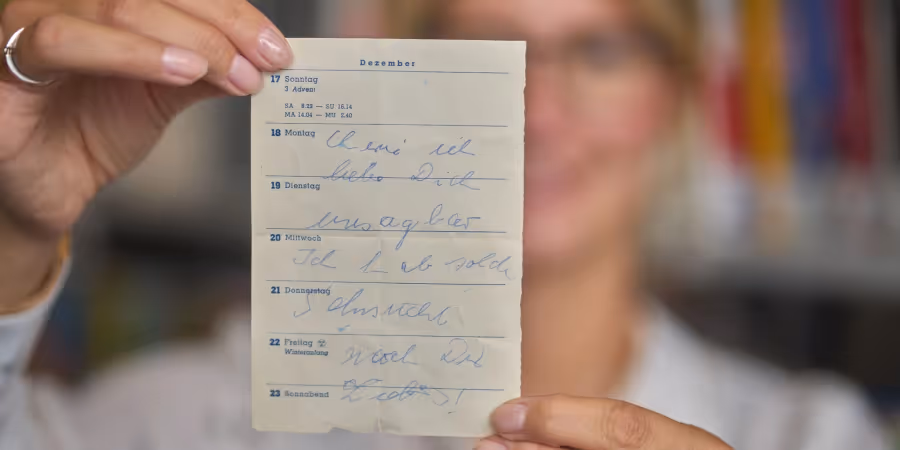 Dezember
17 Sonntag
3 Advent
SA 8.22 — SU 16.14
MA 14.04 — MU 5.40
18 Montag
Cheri ich
liebe Dich
19 Dienstag
unsagbar
20 Mittwoch
Ich hab solch
21 Donnerstag
Sehnsucht
22 Freitag
Winteranfang
nach Dir
23 Sonnabend
Liebes!